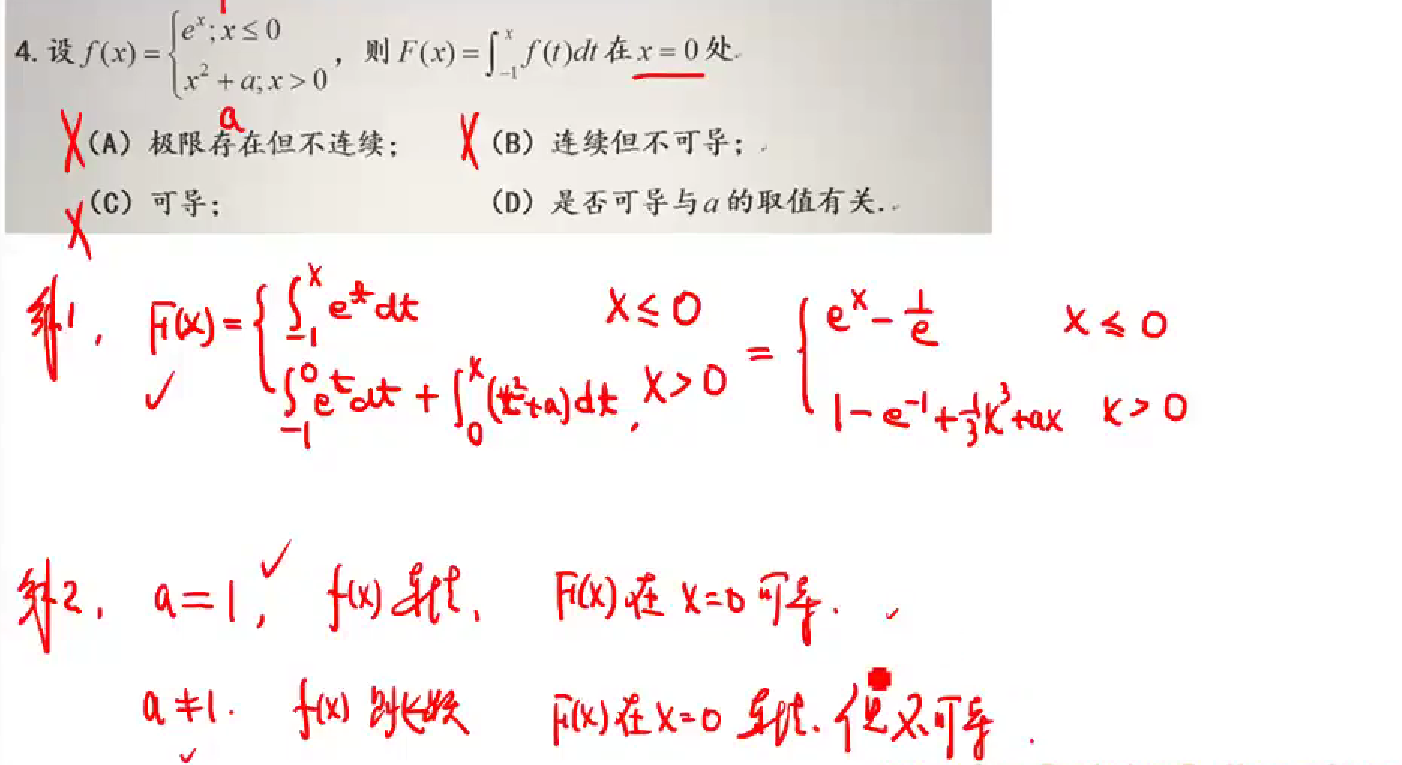 4. 设 f(x) = { e^x; x ≤ 0
x² + a; x > 0 , 则 F(x) = ∫_{-1}^{x} f(t)dt 在 x = 0 处.
a
X (A) 极限存在但不连续; X (B) 连续但不可导;
X (C) 可导; (D) 是否可导与 a 的取值有关.
解1, F(x) = { ∫_{-1}^{x} e^t dt x ≤ 0 = { e^x - 1/e x ≤ 0
✓ ∫_{-1}^{0} e^t dt + ∫_{0}^{x} (t²+a)dt, x > 0 1 - e^{-1} + 1/3 x³ + ax x > 0
解2, a = 1, ✓ f(x) 连续, F(x) 在 x=0 可导. ✓
a ≠ 1. f(x) 跳跃 F(x) 在 x=0 连续. 但不可导.
✓